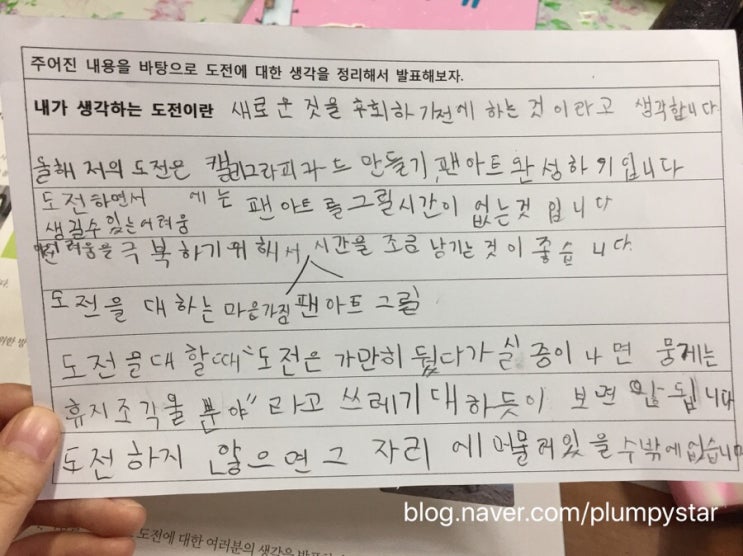 주어진 내용을 바탕으로 도전에 대한 생각을 정리해서 발표해보자.
내가 생각하는 도전이란 새로운 것을 후회하기전에 하는 것이라고 생각합니다
올해 저의 도전은 캘리그라피카드 만들기, 팬아트완성하기입니다
도전하면서 에는 팬아트를그릴시간이 없는것 입니다
생길수있는어려움
어려움을 극복하기위해서 시간을 조금 남기는 것이 좋습니다.
도전을 대하는 마음가짐 팬아트그릴
도전을대할때 "도전은 가만히 뒀다가 싫증이나면 뭉게는
휴지조각일 뿐야" 라고 쓰레기대하듯이 보면 안됩니다
도전하지 않으면 그 자리에머물러있을수밖에없습니다
도전에 대한 여러분의 생각을
blog.naver.com/plumpystar